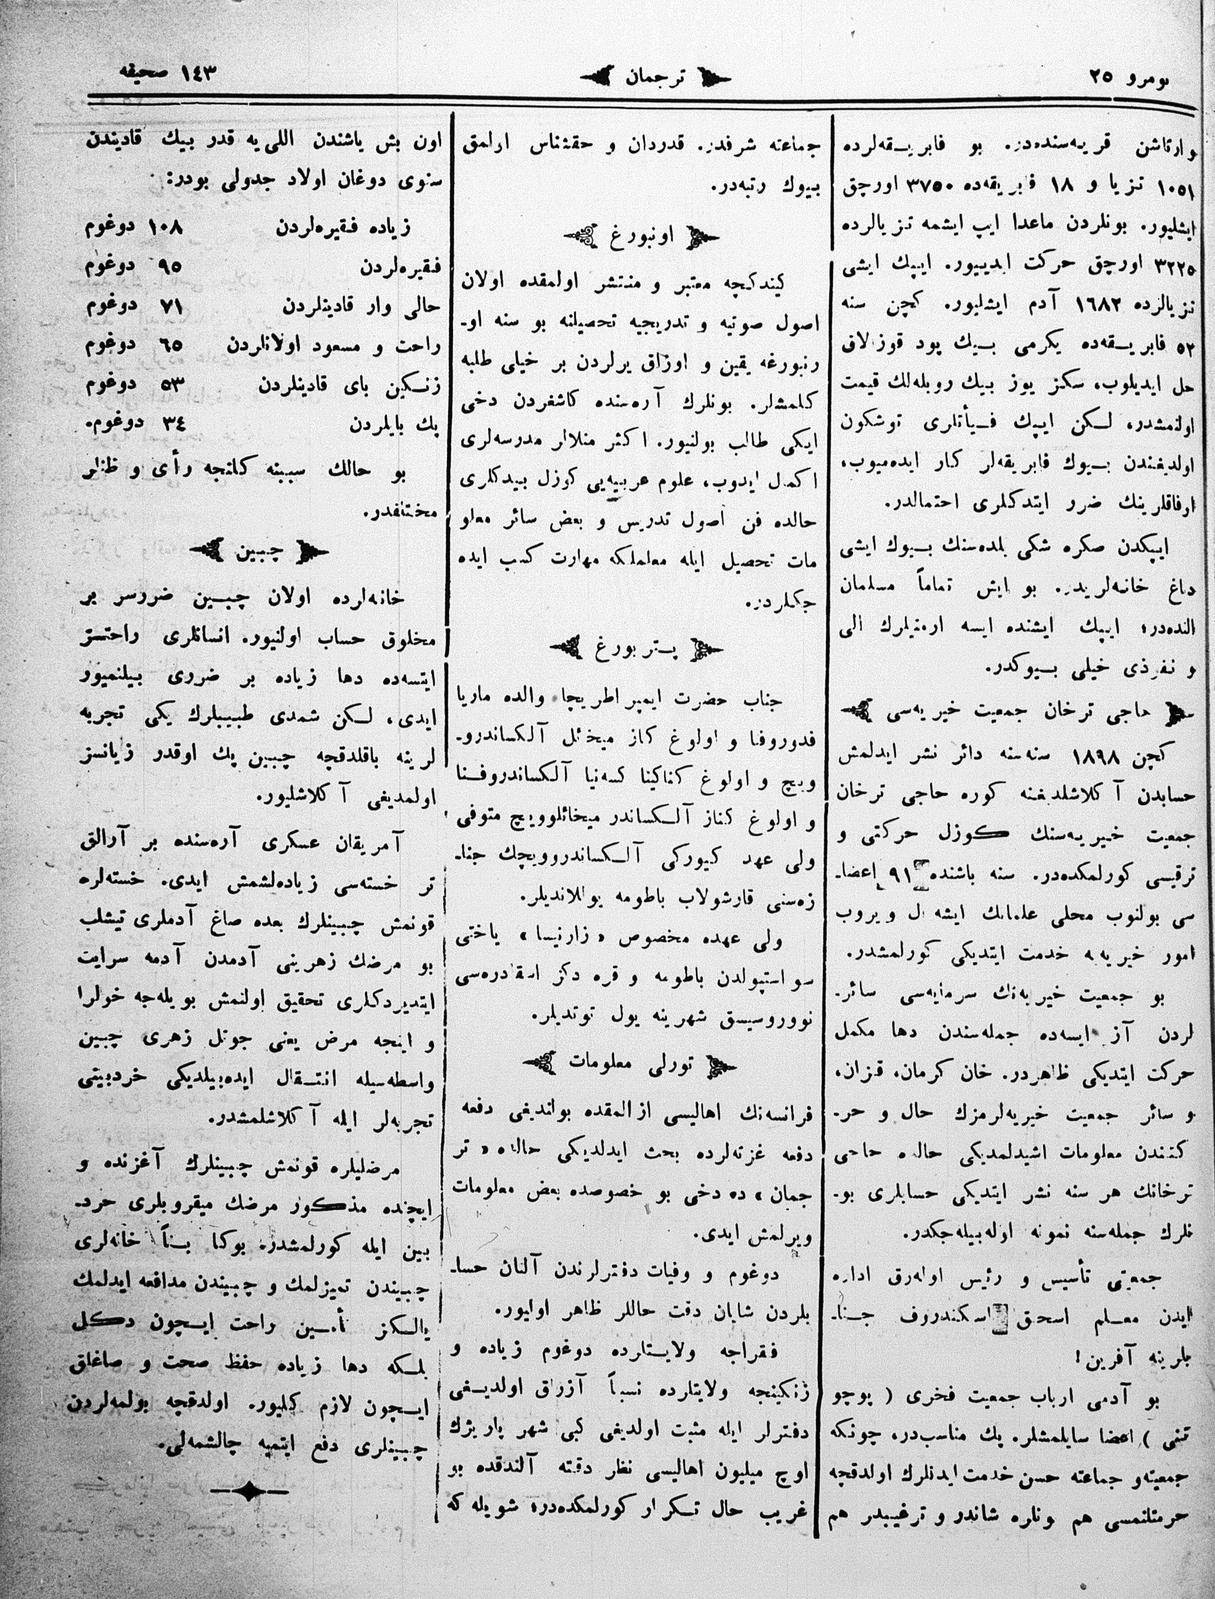 نومرو ٢٥
ترجمان
١٤٣ صحيفه
وارتاشن قريه‌سنده‌در. بو فابريقه‌لرده
١٠٥١ تزيا و ١٨ فابريقه‌ده ٣٧٥٠ اورچق
ايشليور. بونلردن ماعدا ايپ ايشمه تزيالرده
٣٢٢٥ اورچق حركت ايدييور. ايپك ايشى
تزيالرده ١٦٨٢ آدم ايشليور. كچن سنه
٥٢ فابريقه‌ده يكرمى بيك پود قوزلاق
حل ايديلوب، سكز يوز بيك روبله‌لك قيمت
اولنمشدر، لكن ايپك فيأتلرى توشكون
اولديغندن بيوك فابريقه‌لر كار ايده‌ميوب،
اوفاقلرينك ضرر ايتدكلرى احتمالدر.
ايپكدن صكره شكى بلده‌سنك بيوك ايشى
داغ خانه‌لريدر. بو ايش تماماً مسلمان
النده‌در؛ ايپك ايشنده ايسه ارمنيلرك الى
و نفوذى خيلى بيوكدر.
حاجى ترخان جمعيت خيريه‌سى
كچن ١٨٩٨ سنه‌سنه دائر نشر ايدلمش
حسابدن آكلاشلديغنه كوره حاجى ترخان
جمعيت خيريه‌سنك كوزل حركتى و
ترقيسى كورلمكده‌در. سنه باشنده ٩١ اعضا-
سى بولنوب محلى علمانك ايشه ال ويروب
امور خيريه‌يه خدمت ايتديكى كورلمشدر.
بو جمعيت خيريه‌نك سرمايه‌سى سائر-
لردن آز ايسه‌ده جمله‌سندن دها مكمل
حركت ايتديكى ظاهردر. خان كرمان، قزان،
و سائر جمعيت خيريه‌لرمزك حال و حر-
كتندن معلومات اشيدلمديكى حالده حاجى
ترخانك هر سنه نشر ايتديكى حسابلرى بو-
نلرك جمله‌سنه نمونه اوله‌بيله‌جكدر.
جمعيتى تأسيس و رئيس اوله‌رق اداره
ايدن معلم اسحق اسكندروف جنا-
بلرينه آفرين!
بو آدمى ارباب جمعيت فخرى ( پوچو
تنى ) اعضا سايلمشلر. پك مناسب‌در، چونكه
جمعيته‌و جماعته حسن خدمت ايدنلرك اولدقچه
حرمتلنمسى هم ونلره شاندر و ترغيبدر هم
جماعته شرفدر. قدردان و حقشناس اولمق
بيوك رتبه‌در.
اونبورغ
كيندكچه معتبر و منتشر اولمقده اولان
اصول صوتيه و تدريجيه تحصيلنه بو سنه او-
رنبورغه يقين و اوزاق يرلردن بر خيلى طلبه
كلمشلر. بونلرك آره‌سنده كاشغردن دخى
ايكى طالب بولنيور. اكثر منلالر مدرسه‌لرى
اكمال ايدوب، علوم عربيه‌يى كوزل بيدكلرى
حالده فن اصول تدريس و بعض سائر معلو
مات تحصيل ايله معلملكه مهارت كسب ايده
جكلردر.
پتربورغ
جناب حضرت ايمپراطريچا والده ماريا
فدوروفنا و اولوغ كناز ميخئل آلكساندرو-
ويچ و اولوغ كناكينا كسه‌نيا آلكساندروفنا
و اولوغ كناز آلكساندر ميخائلوويچ متوفى
ولى عهد كيوركى آلكساندروويچك جنا-
زه‌سنى قارشولاب باطومه يوللانديلر.
ولى عهده مخصوص «زارنيسا» ياختى
سواستپولدن باطومه و قره دكز اسقادره‌سى
نووروسيسق شهرينه يول توتديلر.
تورلى معلومات
فرانسه‌نك اهاليسى ازالمقده بولنديغى دفعه
دفعه غزته‌لرده بحث ايدلديكى حالده «تر
جمان» ده‌دخى بو خصوصده بعض معلومات
ويرلمش ايدى.
دوغوم و وفيات دفترلرندن آلنان حسا-
بلردن شايان دقت حاللر ظاهر اوليور.
فقراجه ولايتلرده دوغوم زياده و
زنكينجه ولايتلرده نسباً آزراق اولديغى
دفترلر ايله مثبت اولديغى كبى شهر پاريژك
اوچ ميليون اهاليسى نظر دقته آلندقده بو
غريب حال تكرار كورلمكده‌در؛ شويله كه
اون بش ياشندن اللى‌يه قدر بيك قاديندن
سنوى دوغان اولاد جدولى بودر:
زياده فقيره‌لردن ١٠٨ دوغوم
فقيره‌لردن ٩٥ دوغوم
حالى وار قادينلردن ٧١ دوغوم
راحت و مسعود اولانلردن ٦٥ دوغوم
زنكين باى قادينلردن ٥٣ دوغوم
پك بايلردن ٣٤ دوغوم.
بو حالك سببنه كلنجه رأى و ظنلر
مختلفدر.
چبين
خانه‌لرده اولان چبين ضررسز بر
مخلوق حساب اولنيور. انسانلرى راحتسز
ايتسه‌ده دها زياده بر ضررى بيلنميور
ايدى، لكن شمدى طبيبلرك يكى تجربه
لرينه باقلدقچه چبين پك اوقدر زيانسز
اولمديغى آكلاشليور.
آمريقان عسكرى آره‌سنده بر آرالق
تر خسته‌سى زياده‌لشمش ايدى. خسته‌لره
قونمش چبينلرك بعده صاغ آدملرى تيشلب
بو مرضك زهرينى آدمدن آدمه سرايت
ايتديردكلرى تحقيق اولنمش بويله‌جه خولرا
و اينجه مرض يعنى جوتل زهرى چبين
واسطه‌سيله انتقال ايده‌بيلديكى خردبينى
تجربه‌لر ايله آكلاشلمشدر.
مرضليلره قونمش چبينلرك آغزنده و
ايچنده مذكور مرضك ميقروبلرى خرد-
بين ايله كورلمشدر. بوكا بناً خانه‌لرى
چبيندن تميزلمك و چبيندن مدافعه ايدلمك
يالكز تأمين راحت ايچون دكل
بلكه دها زياده حفظ صحت و صاغلق
ايچون لازم كليور. اولدقچه بولمه‌لردن
چبينلرى دفع ايتميه چالشمه‌لى.